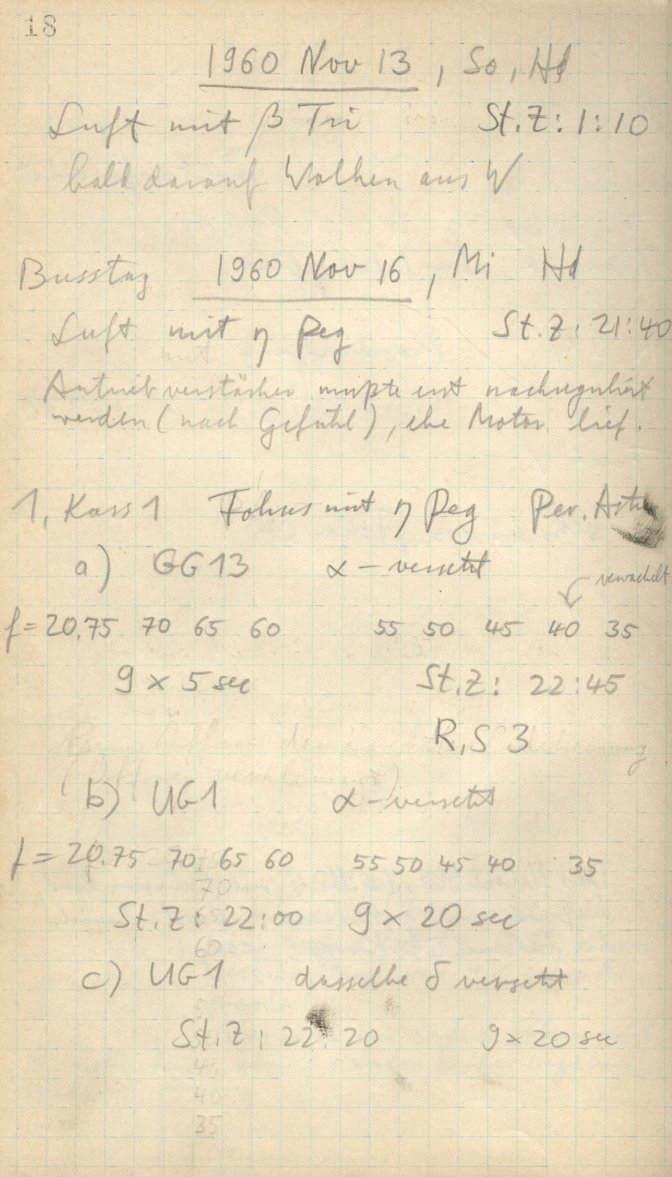 18
1960 Nov 13, So, Hd
Luft mit β Tri St.Z: 1:10
bald darauf Wolken aus W
Busstag 1960 Nov 16, Mi Hd
Luft mit η Peg St.Z: 21:40
Antriebverstärker mußte erst nachreguliert
werden (nach Gefühl), ehe Motor lief.
1, Kass 1 Fokus mit η Peg Per. Astro
a) GG13 α-versetzt
verwackelt
f = 20,75 70 65 60 55 50 45 40 35
9 x 5 sec St.Z: 22:45
R,S 3
b) UG1 α-versetzt
f = 20.75 70 65 60 55 50 45 40 35
St.Z: 22:00 9 x 20 sec
c) UG1 dasselbe δ versetzt
St.Z: 22:20 9 x 20 sec